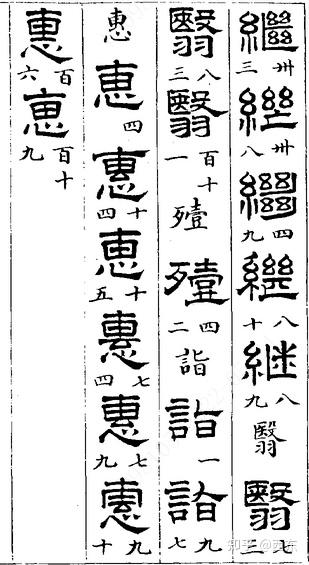 繼卅三繼卅八繼四九繼八十継八九翳翳七三
翳八三翳百十一殪殪四二詣詣一詣九七
惠惠四惠十四惠十五惠七四惠七九惠九十
惠百六惠百十九
知乎 @西东